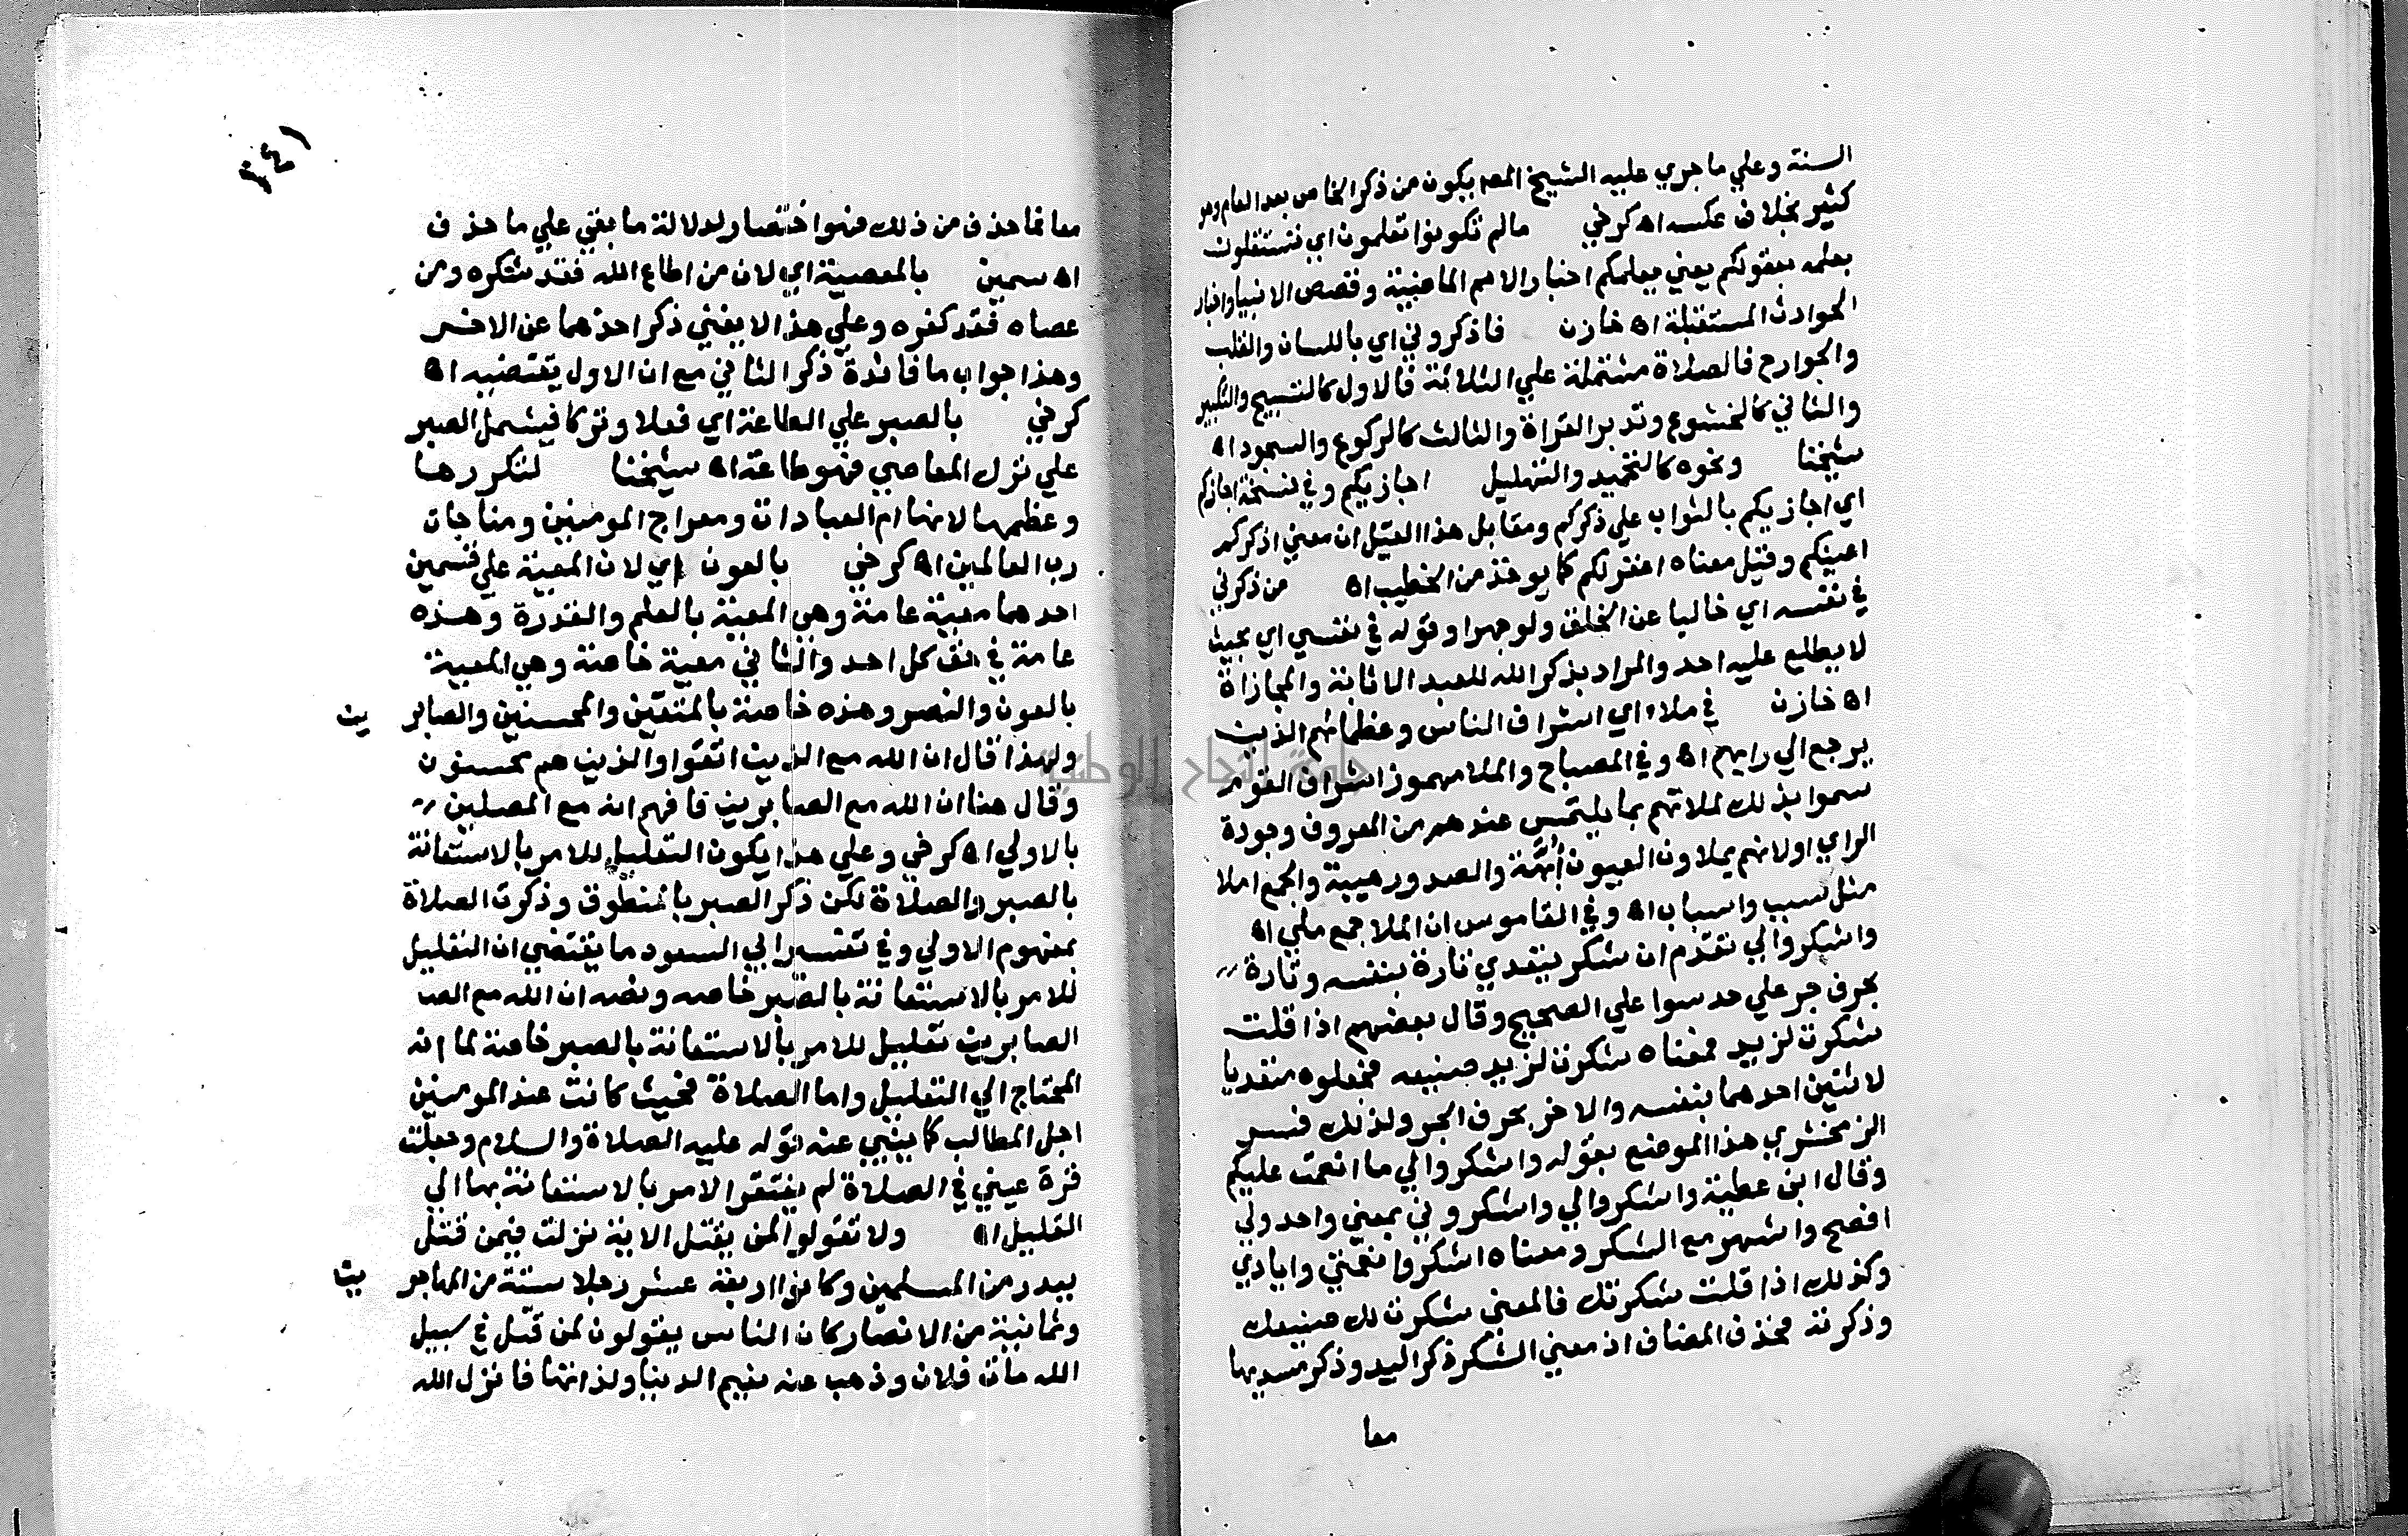 السنة وعلي ما جري عليه الشيخ المصـ يكون من ذكر الخاص بعد العام وهو
كثير بخلاف عكسه اه كرخي مالم تكونوا تعلمون اي تستقلون
بعلمه بعقولكم يعني يعلمكم اخبار الامم الماضية وقصص الانبيا واخبار
الحوادث المستقبلة اه خازن فاذكروني اي باللسان والقلب
والجوارح فالصلاة مشتملة علي الثلاثة فالاول كالتسبيح والتكبير
والثاني كالخشوع وتدبر القراة والثالث كالركوع والسجود اه
شيخنا ونحوه كالتحميد والتهليل اجازيكم وفي نسخة اجازكم
اي اجازيكم بالثواب علي ذكركم ومقابل هذا القيل ان معني اذكركم
اعينكم وقيل معناه اغفر لكم كما يوخذ من الخطيب اه من ذكرني
في نفسه اي خاليا عن الخلق ولو جهرا وقوله في نفسي اي بحيث
لا يطلع عليه احد والمراد بذكر الله للعبد الاثابة والمجازاة
اه خازن في ملاء اي اشراف الناس وعظمائهم الذين
يرجع الي رايهم اه وفي المصباح والملا مهموز اشراف القوم
سموا بذلك لملاتهم بما يلتمس عندهم من المعروف وجودة
الراي او لانهم يملاون العيون أبهة والصدور هيبة والجمع املا
مثل سبب واسباب اه وفي القاموس ان الملا جمع ملي اه
واشكروا لي تقدم ان شكر يتعدي تارة بنفسه وتارة
بحرف جر علي حد سوا علي الصحيح وقال بعضهم اذا قلت
شكرت لزيد فمعناه شكرت لزيد صنيعه فجعلوه متعديا
لاثنين احدهما بنفسه والاخر بحرف الجر ولذلك فسر
الزمخشري هذا الموضع بقوله واشكروا لي ما انعمت عليكم
وقال ابن عطية واشكروا لي واشكروني بمعني واحد ولي
افصح واشهر مع الشكر ومعناه اشكروا نعمتي وايادي
وكذلك اذا قلت شكرتك فالمعني شكرت لك صنيعك
وذكرته فحذف المضاف اذ معني الشكر ذكر اليد وذكر مسديها
معا
٢٤١
معا فما حذف من ذلك فهو اختصار لدلالة ما بقي علي ما حذف
اه سمين بالمعصية اي لان من اطاع الله فقد شكره ومن
عصاه فقد كفره وعلي هذا لا يغني ذكر احدهما عن الاخر
وهذا جواب ما فائدة ذكر الثاني مع ان الاول يقتضيه اه
كرخي بالصبر علي الطاعة اي فعلا وتركا فيشمل الصبر
علي ترك المعاصي فهو طاعة اه شيخنا لتكررها
وعظمها لانها ام العبادات ومعراج المومنين ومناجات
رب العالمين اه كرخي بالعون اي لان المعية علي قسمين
احدهما معية عامة وهي المعية بالعلم والقدرة وهذه
عامة في حق كل احد والثاني معية خاصة وهي المعية
بالعون والنصر وهذه خاصة بالمتقين والمحسنين والصابرين
ولهذا قال ان الله مع الذين اتقوا والذين هم محسنون
وقال هنا ان الله مع الصابرين فافهم انه مع المصلين
بالاولي اه كرخي وعلي هذا يكون التعليل للامر بالاستعانة
بالصبر والصلاة لكن ذكر الصبر بالمنطوق وذكرت الصلاة
بمفهوم الاولي وفي تفسير ابي السعود ما يقتضي ان التعليل
للامر بالاستعانة بالصبر خاصه ونصه ان الله مع الصا
الصابرين تعليل للامر بالاستعانة بالصبر خاصة لما انه
المحتاج الي التعليل واما الصلاة فحيث كانت عند المومنين
اجل المطالب كما ينبي عنه قوله عليه الصلاة والسلام وجعلت
قرة عيني في الصلاة لم يفتقر الامر بالاستعانة بها الي
التعليل اه ولا تقولوا لمن يقتل الاية نزلت فيمن قتل
ببدر من المسلمين وكانوا اربعة عشر رجلا ستة من المهاجرين
وثمانية من الانصار كان الناس يقولون لمن قتل في سبيل
الله مات فلان وذهب عنه نعيم الدنيا ولذاتها فانزل الله
جامعة النجاح الوطنية